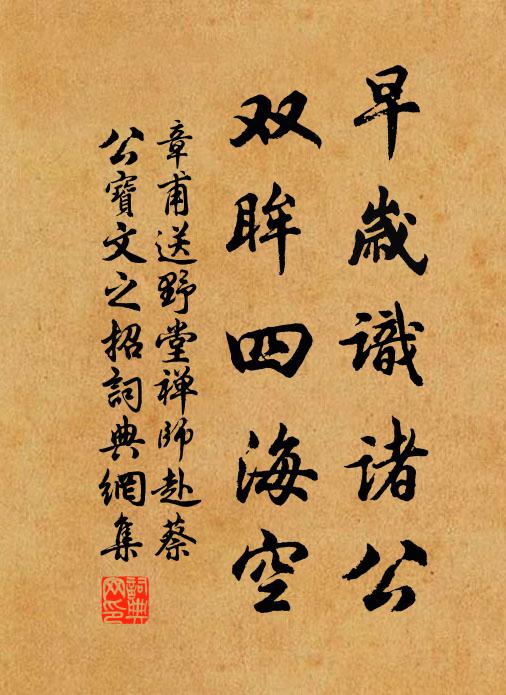 早歳識诸公
双眸四海空
章甫送野堂禅師赴蔡
公寶文之招詞典網集
詞典网印